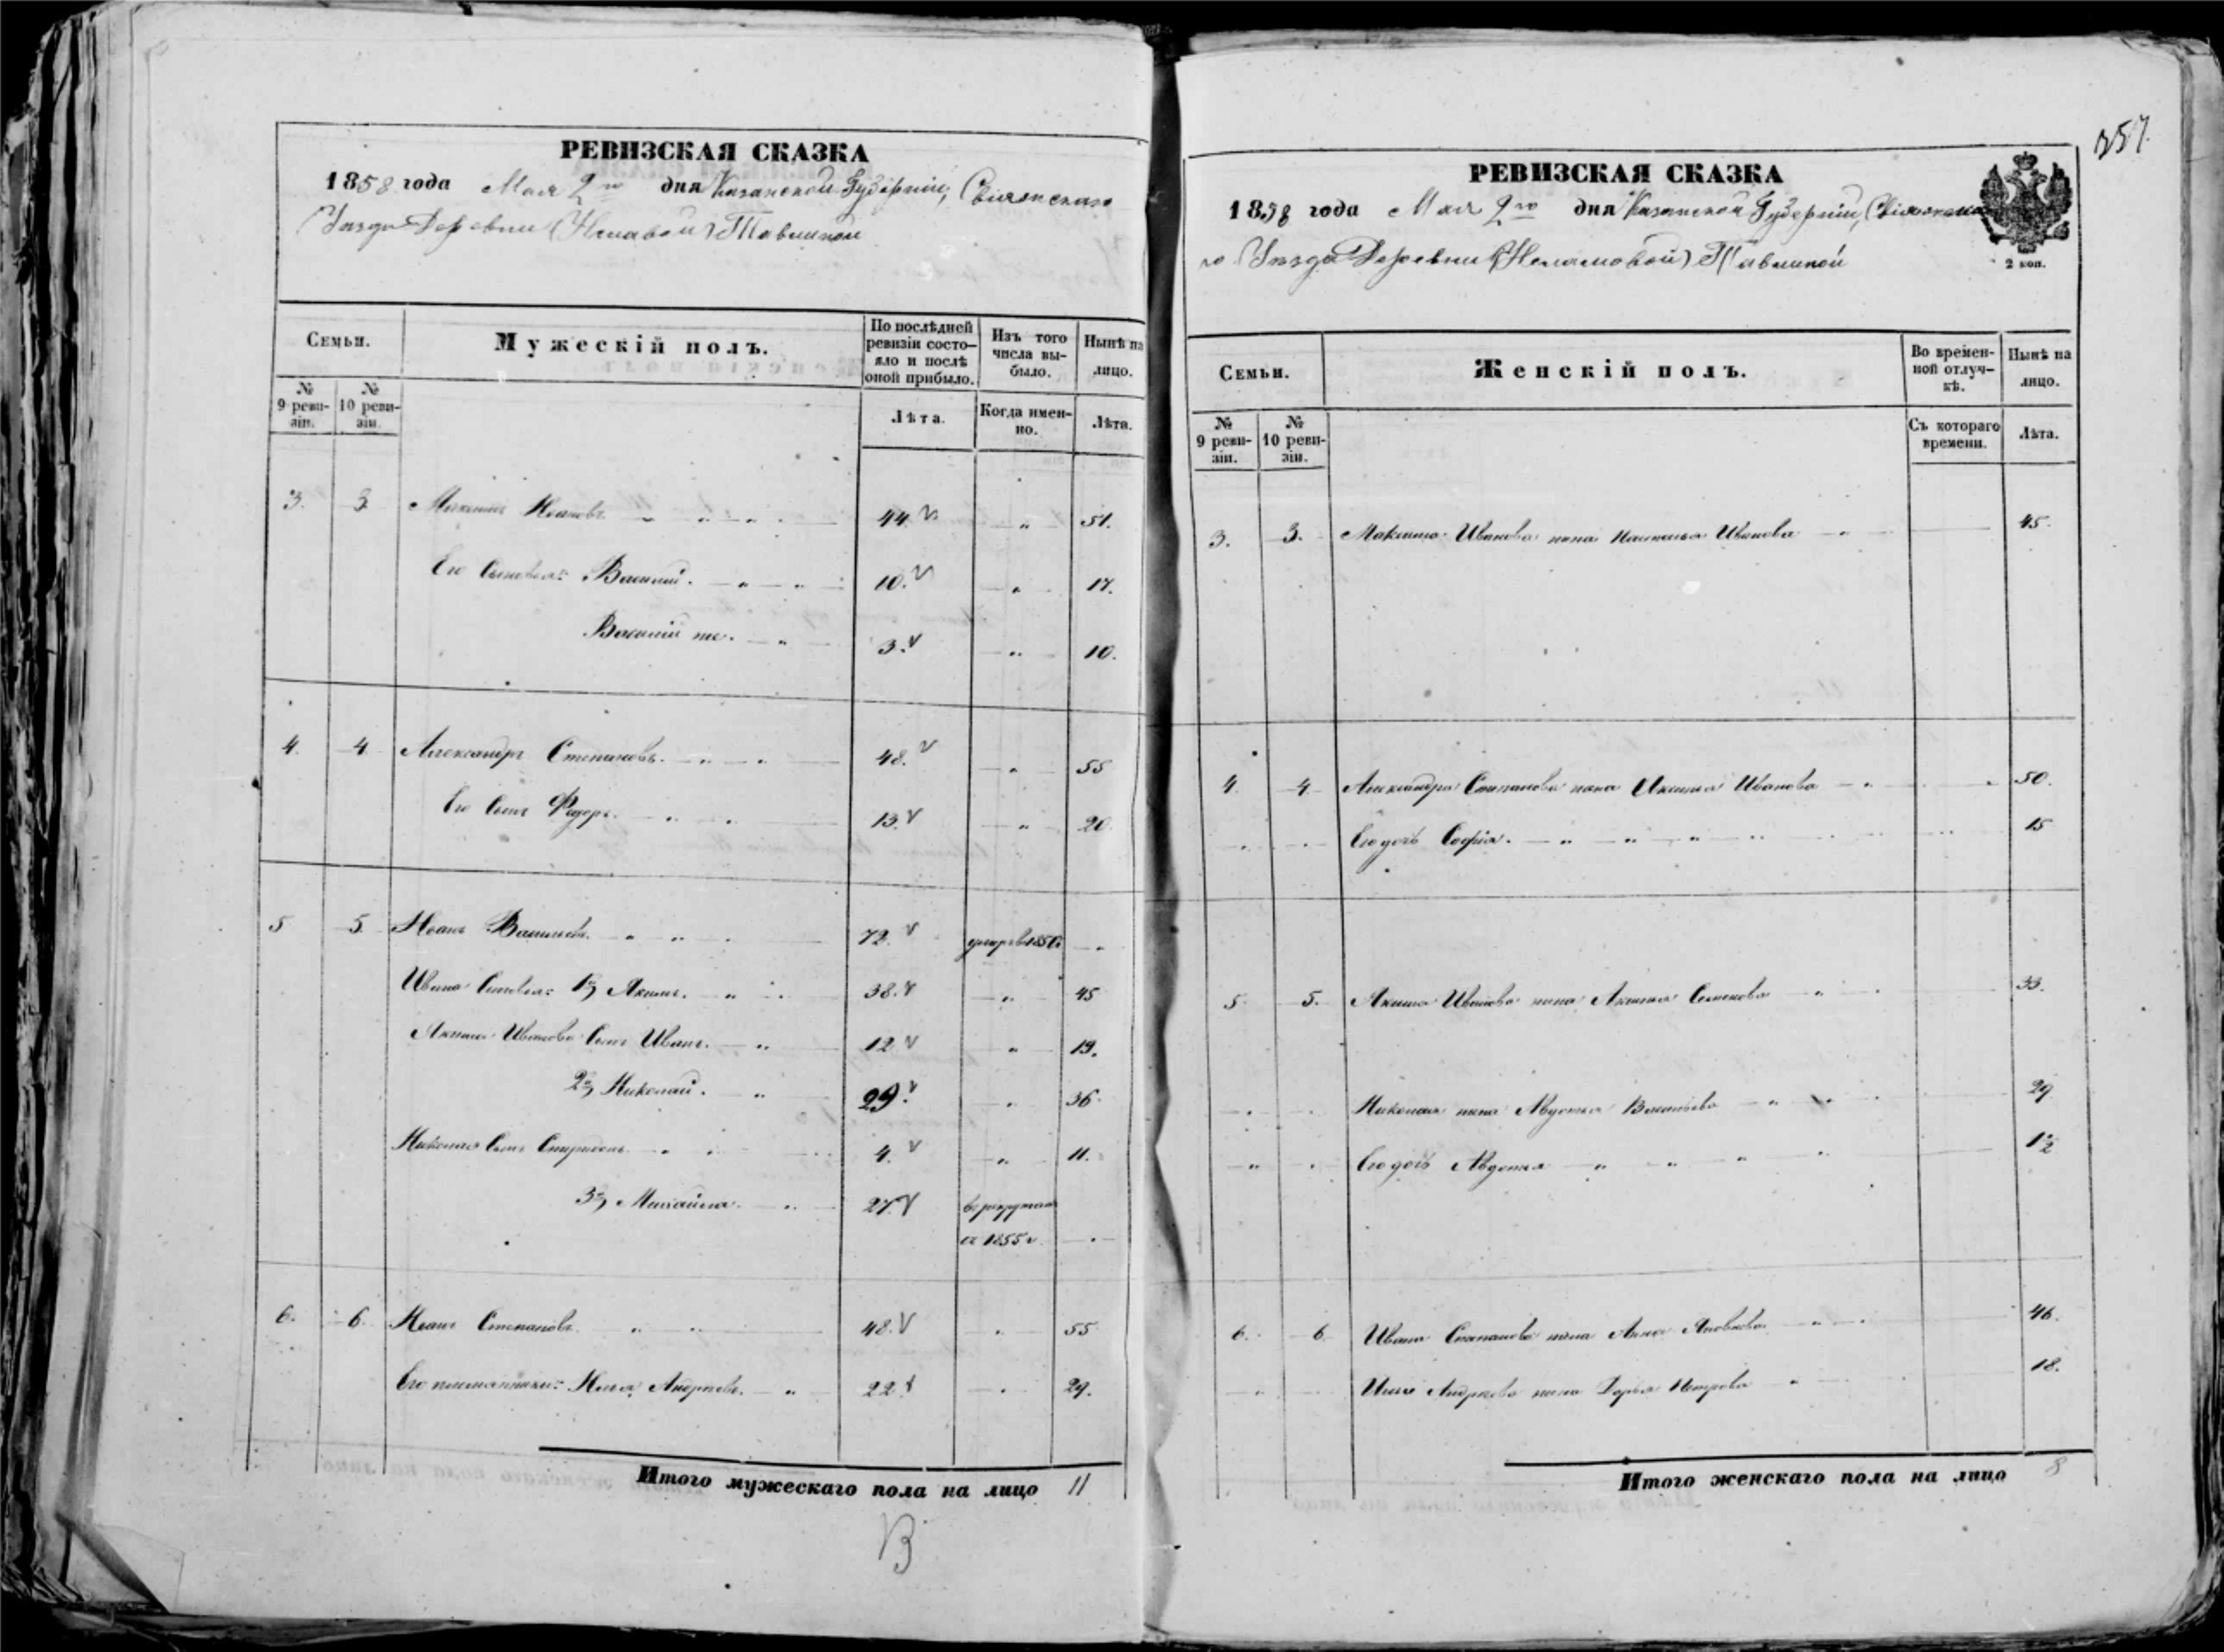 РЕВИЗСКАЯ СКАЗКА
1858 года Мая 2го дня Казанской Губерніи, Свіяжскаго
Уезда Деревни Тавлиной
Семьи.
Мужескій полъ.
По послѣдней ревизіи состо-яло и послѣ оной прибыло.
Изъ того числа вы-было.
Нынѣ на лицо.
№ 9 реви-зіи.
№ 10 реви-зіи.
Лѣта.
Когда имен-но.
Лѣта.
3. 3. Максимъ Ивановъ 44. 51.
Его Сыновья: Василий. 10. 17.
Василий же. 3. 10.
4. 4. Александръ Степановъ. 48. 55
Его Сынъ Федоръ. 13. 20.
5 5. Иванъ Васильевъ. 72. умеръ в 1856
Ивана Сыновья: 1й Акимъ. 38. 45
Акима Иванова Сынъ Иванъ. 12 19.
2й Николай. 29. 36.
Николая Сынъ Спиридонъ. 4. 11.
3й Михайла. 27. в рекрутах
с 1855 г.
6. 6. Иванъ Степановъ 48. 55
Его племянники: Илья Андреевъ. 22. 29.
Итого мужескаго пола на лицо 11
В
257.
РЕВИЗСКАЯ СКАЗКА
1858 года Мая 2го дня Казанской Губерніи, Свіяжска
го Уезда Деревни Тавлиной
2 коп.
Семьи.
Женскій полъ.
Во времен-ной отлуч-кѣ.
Нынѣ на лицо.
№ 9 реви-зіи.
№ 10 реви-зіи.
Съ котораго времени.
Лѣта.
3. 3. Максима Иванова жена Настасья Иванова 45.
4. 4. Александра Степанова жена Иванова 50.
Его дочь Софія. 15
5. 5. Акима Иванова жена Аксинья Семенова 33.
Николая жена Авдотья Васильева 29
Его дочь Авдотья 1½
6. 6. Ивана Степанова жена Анна Яковлева 46.
Ильи Андреева жена Дарья Петрова 18.
Итого женскаго пола на лицо 8